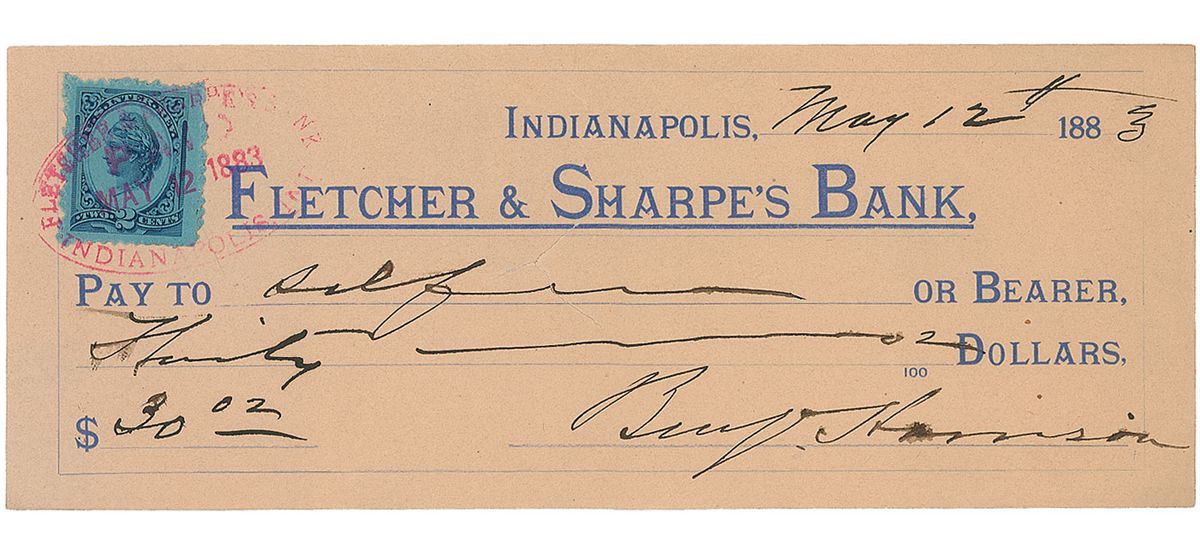 U.S. INTER. REV.
TWO 2 CENTS
MAY 12 1883
INDIANAPOLIS, IND.
INDIANAPOLIS, May 12th 1883
FLETCHER & SHARPE'S BANK,
PAY TO self OR BEARER,
Thirty 02/100 DOLLARS,
$ 30 02
Benj. Harrison